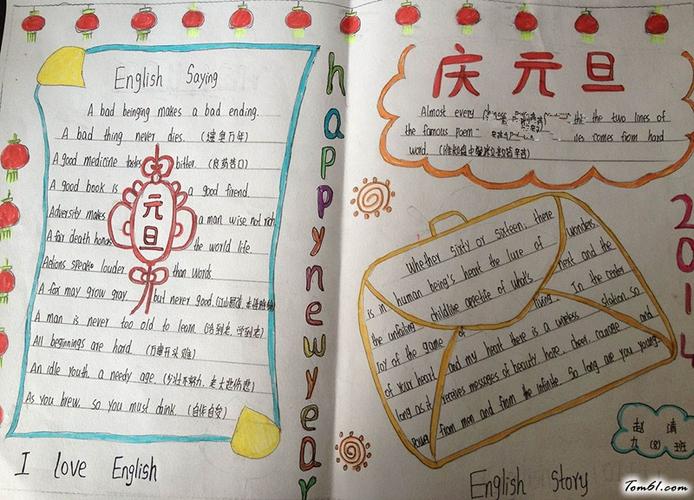 English Saying
A bad beinging makes a bad ending.
A bad thing never dies. (遗臭万年)
A good medicine tastes bitter. (良药苦口)
A good book is a good friend.
Adversity makes a man wise not rich
A fair death honors the world life
Actions speake louder than words
A fox may grow gray, but never good.
A man is never too old to learn. (活到老,学到老)
All beginnings are hard. (万事开头难)
An idle youth, a needy age. (少壮不努力,老大徒伤悲)
As you brew, so you must drink. (自作自受)
元旦
I love English
happy new year
庆元旦
Almost every the two lines of
the famous poem comes from hard
word.
2014
Whether sixty or sixteen, there
is in human being's heart the lure of wonders,
the unfailing childlike appetite of what's next and the
joy of the game of living. In the center
of your heart and my heart there is a wireless station so
long as it receives messages of beauty hope, cheer, courage and
power from men and from the infinite. So long are you young.
赵清
九(8)班
English story
Tom61.com